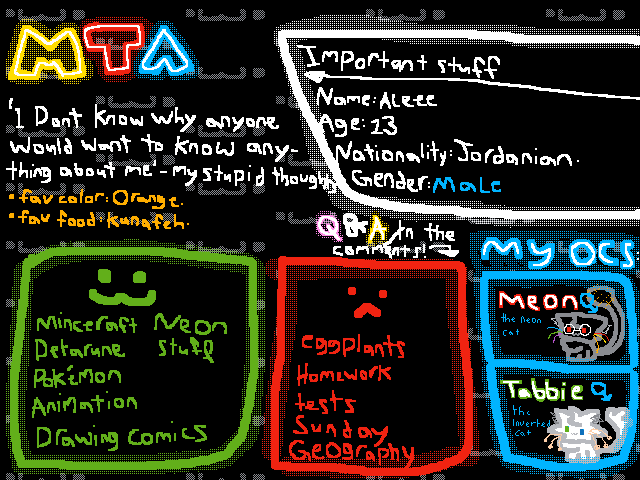 MTA
Important stuff
Name: Aleee
Age: 13
Nationality: Jordanian.
Gender: Male
"I Dont know why anyone
would want to know any-
thing about me"- my stupid thoughts
• fav color: Orange.
• fav food: Kanafeh.
Q&A in the
comments!
Minceraft Neon
Detarune stuff
Pokémon
Animation
Drawing comics
eggplants
Homework
tests
Sunday
Geography
My OCS:
Meon
the neon
cat
Tabbie
the
inverted
cat